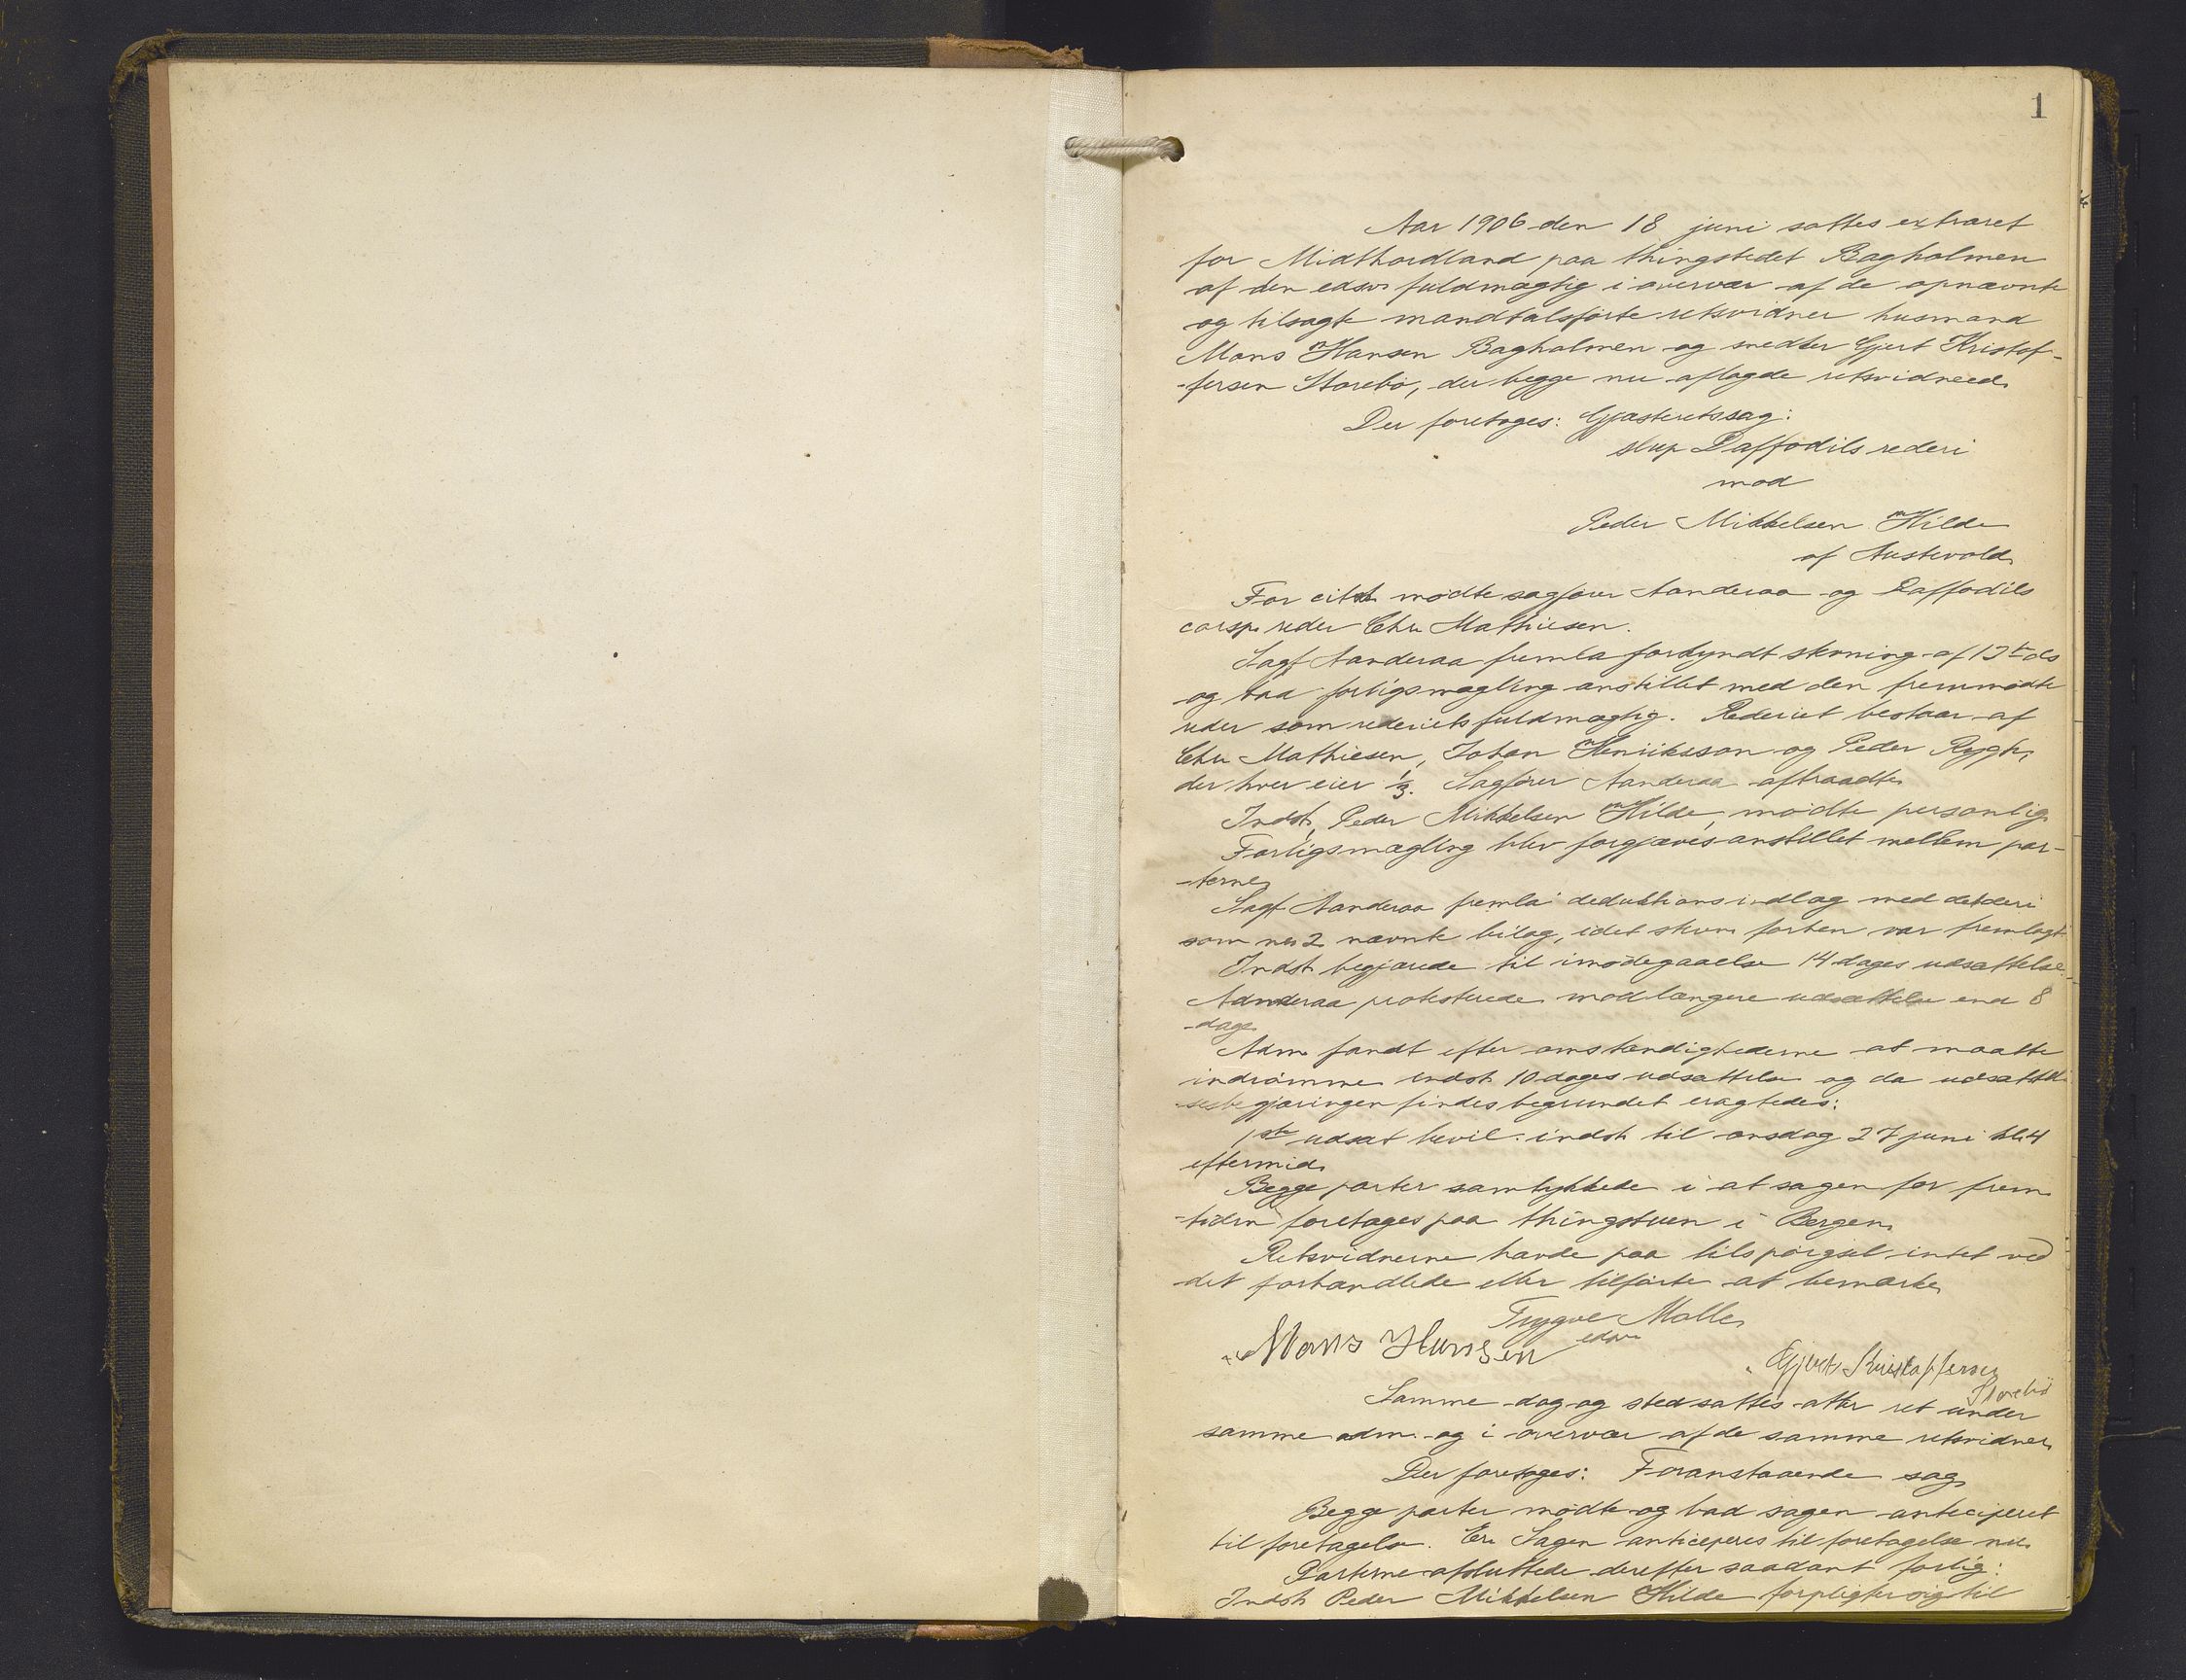 1
Aar 1906 den 18 juni sattes extraret
for Midthordland paa thingstedet Bagholmen
af den edsv. fuldmægtig i overvær af de opnævnte
og tilsagte mandtalsførte retsvidner husmand
Mons Hansen Bagholmen og Gjert Kristof-
-fersen Storebø, der begge nu aflagde retsvidneed.
Der foretoges: Gjæsteretssag:
skup Daffodils rederi
mod
Peder Mikkelsen Hilde
af Austevold.
For citst. mødte sagfører Aanderaa og Daffodils
corsp. reder Chr. Mathiesen.
Sagf. Aanderaa fremla forkyndt stevning af ds
og bad forligsmægling anstillet med den fremmødte
reder som rederiets fuldmægtig. Rederiet bestaar af
Chr. Mathiesen, Johan Henriksson og Peder Rygh,
der hver eier 1/3. Sagfører Aanderaa aftraadte.
Indst., Peder Mikkelsen Hilde, mødte personlig.
Forligsmægling blev forgjæves anstillet mellem par-
-terne.
Sagf. Aanderaa fremla deduktionsindlæg med det deri
som no 2 nævnte bilag, idet stevn. forten var fremlagt.
Indst. begjærede til imødegaaelse 14 dages udsættelse.
Aanderaa protesterede mod længere udsættelse end 8
dage.
Adm. fandt efter omstændighederne at maatte
indrømme indst. 10 dages udsættelse og da udsættel-
sesbegjæringen findes begrundet eragtedes:
1ste udsæt. bevil. indst. til onsdag 27 juni kl. 4
eftermid.
Begge parter samtykkede i at sagen for frem-
-tiden foretages paa thingstuen i Bergen.
Retsvidnerne havde paa tilspørgsel intet ved
det forhandlede eller tilførte at bemærke.
Trygve Molle
edsv.
Mons Hansen
Gjert Kristoffersen
Storebø
Samme dag og sted sattes atter ret under
samme adm. og i overvær af de samme retsvidner.
Der foretoges: Foranstaaende sag.
Begge parter mødte og bad sagen anteciperet
til foretagelse. Er. Sagen anticiperes til foretagelse nu.
Parterne afsluttede derefter saadant forlig:
Indst. Peder Mikkelsen Hilde forpligter sig til